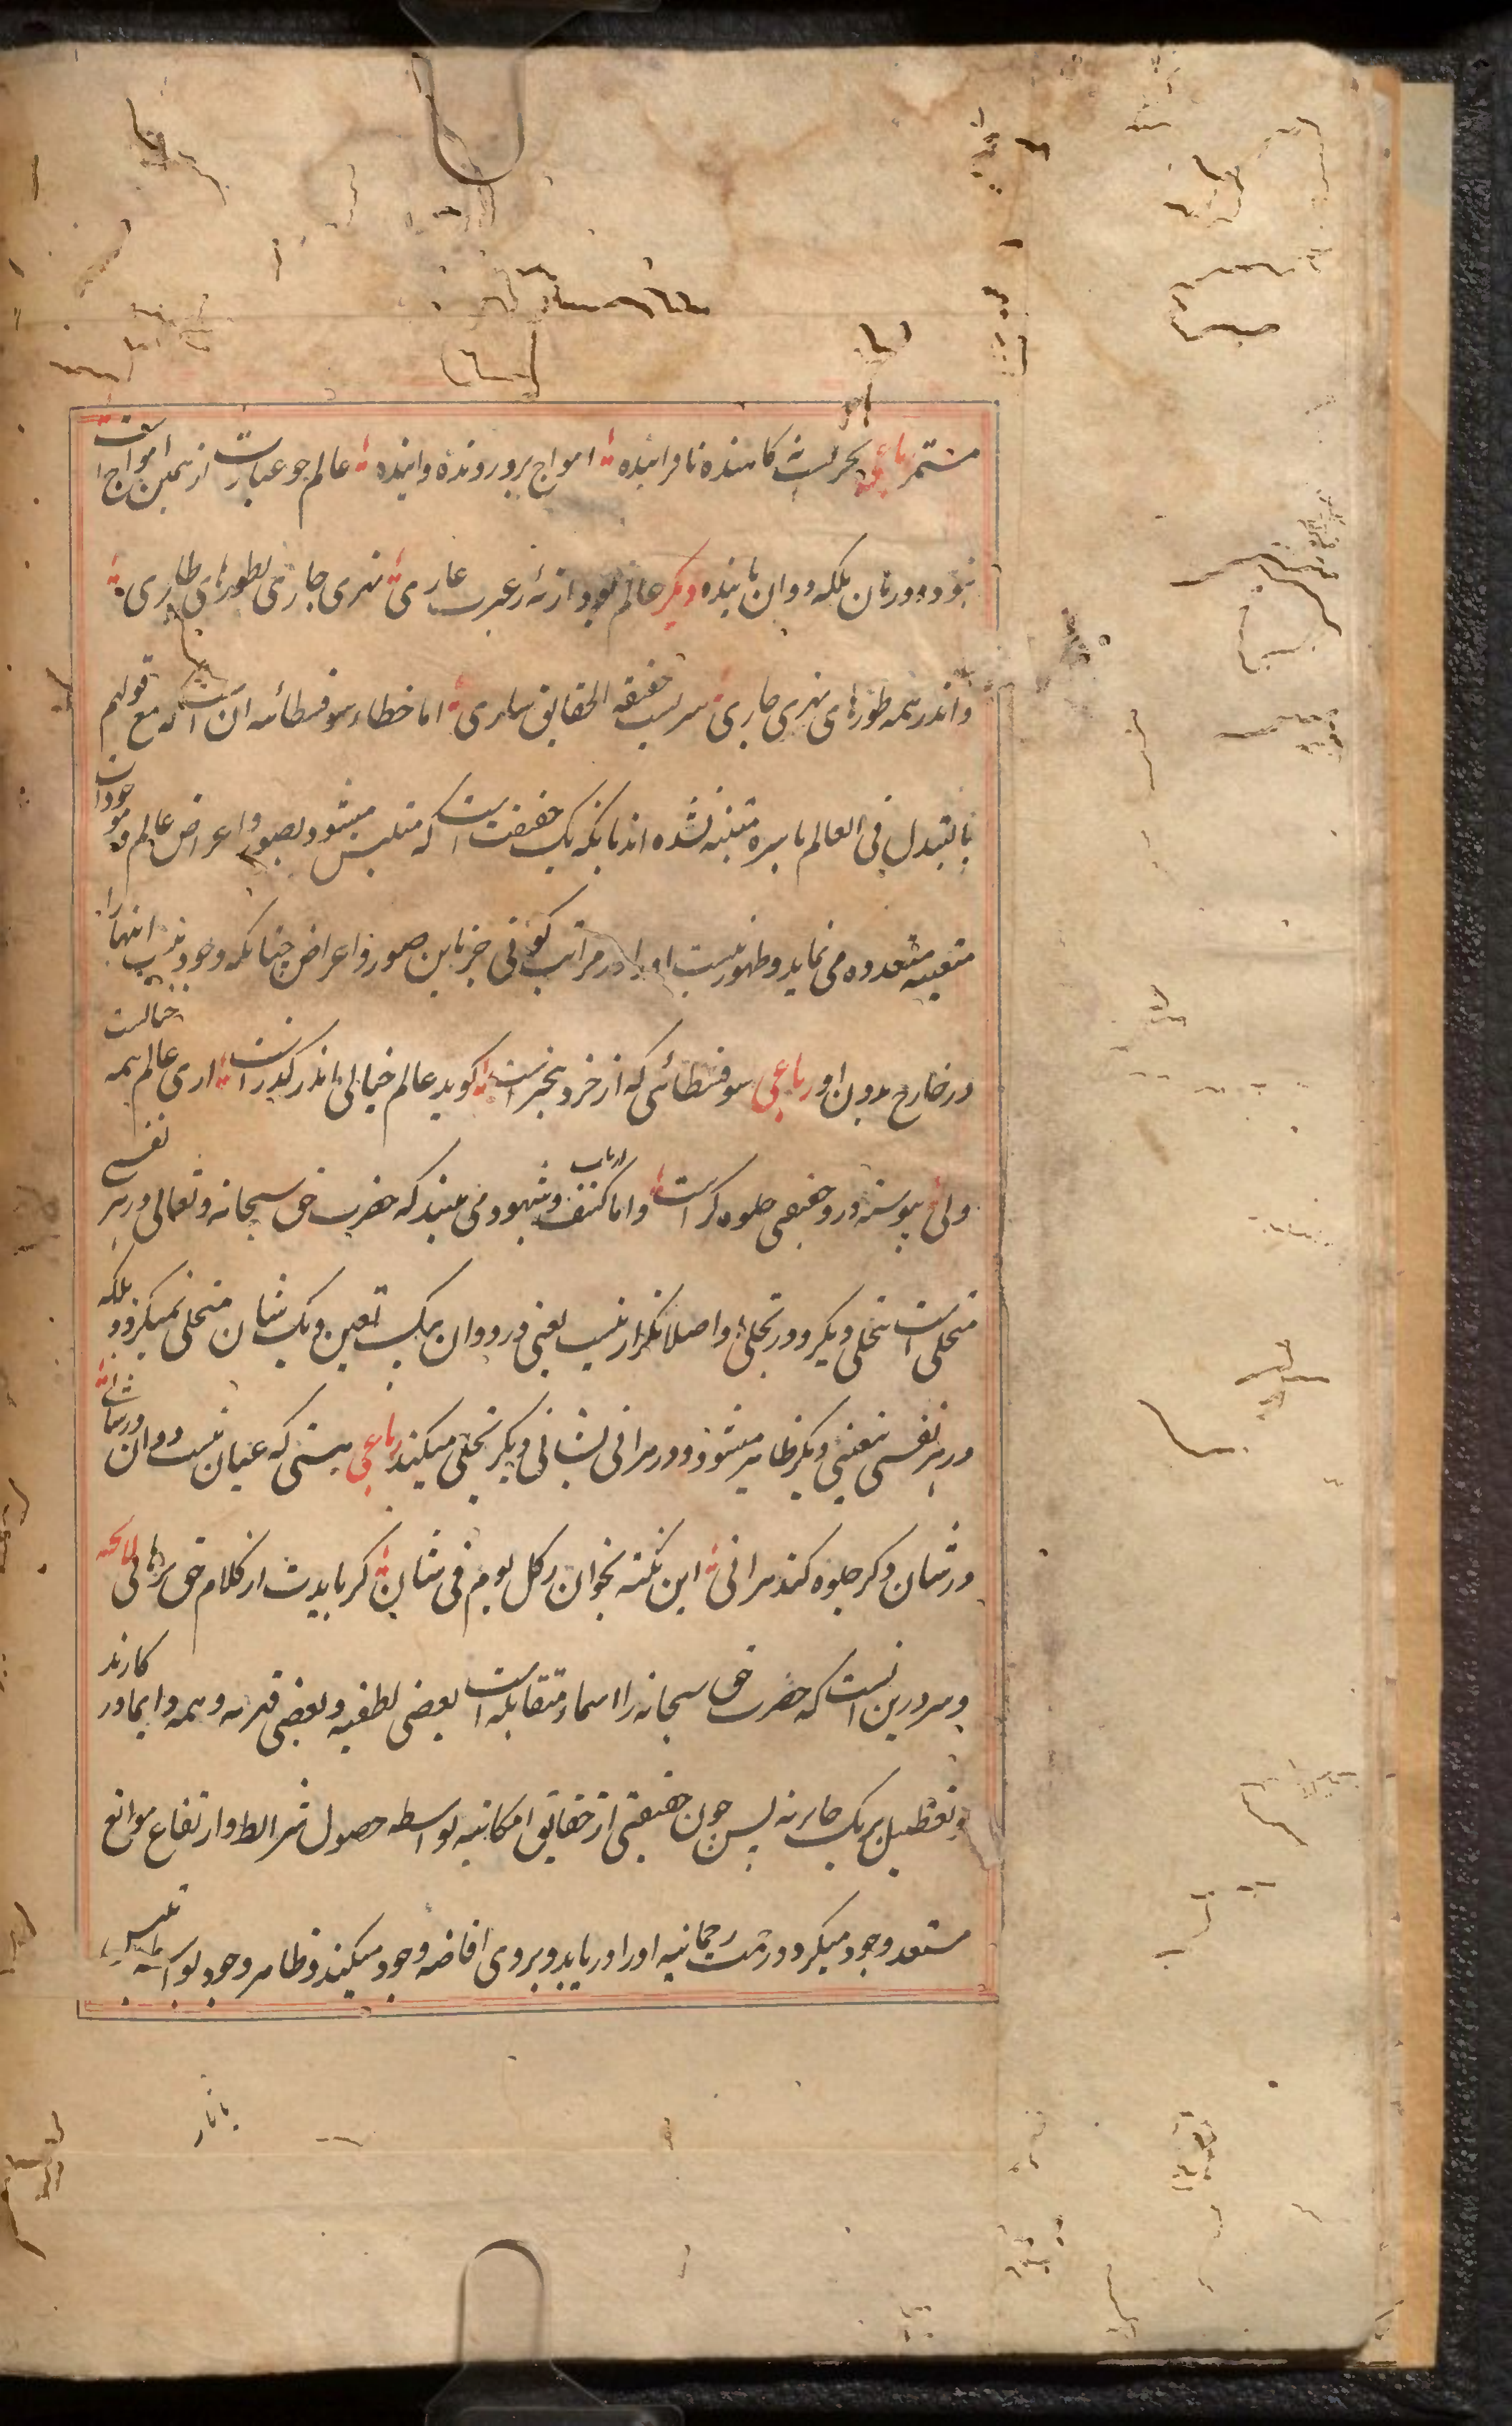 مستمر رباعی بحریست نه کاهنده نه افزاینده امواج برو رونده و آینده عالم چو عبارت از همین امواج است
نبود دو زمان بلکه دو آن پاینده دیگر عالم بود ار نه ز عبرت عاری نهری جاری بطورهای طاری
و اندر همه طورهای نهری جاری سریست حقیقة الحقایق ساری اما خطاء سوفسطائیه آن است که مع قولهم
بالتبدل فی العالم باسره متنبه نشده اند بانکه یک حقیقت است که متلبس میشود بصور و اعراض عالم و موجودات
متعینه متعدده می نماید و ظهور نیست او را در مراتب کونی جز باین صور و اعراض چنانکه وجود نیست اینها را
در خارج بدون او رباعی سوفسطائی که از خرد بیخبر است گوید عالم خیالی اندر گذر است آری عالم همه خیالست
ولی پیوسته درو حقیقی جلوه گر است و اما ارباب کشف و شهود می بینند که حضرت حق سبحانه و تعالی در هر نفسی
متجلی است بتجلی دیگر و در تجلی او اصلا تکرار نیست یعنی در دو آن بیک تعین و یک شان متجلی نمیگردد بلکه
در هر نفسی بتعینی دیگر ظاهر میشود و در هر آنی بشانی دیگر تجلی میکند رباعی هستی که عیان نیست دو آن در شانی
در شان دگر جلوه کند هر آنی این نکته بجو از کل یوم فی شان گر بایدت از کلام حق برهانی لایحه
و سر درین آنست که حضرت حق سبحانه را اسماء متقابله است بعضی لطفیه و بعضی قهریه و همه دایما در کارند
و تعطیل بر یک جایز نه پس چون حقیقتی از حقایق امکانیه بواسطه حصول شرایط و ارتفاع موانع
مستعد وجود میگردد رحمت رحمانیه او را دریابد و بر وی افاضه وجود میکند و ظاهر وجود بواسطه تلبس
بآثار